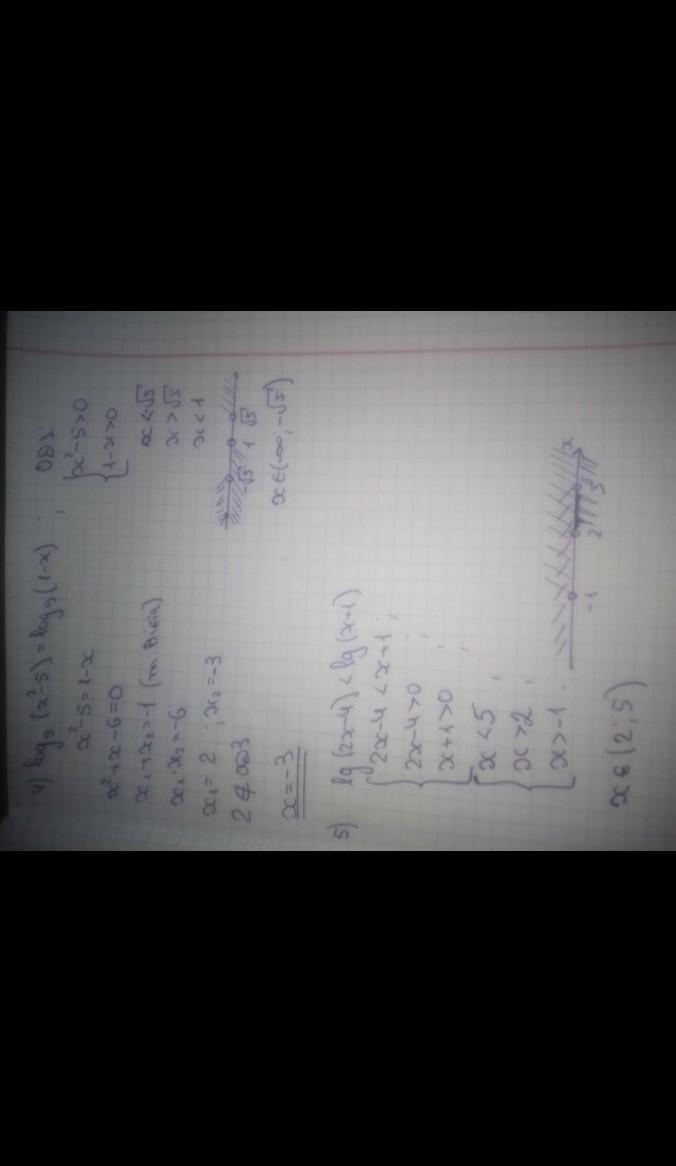 4) log₉ (x²-5) = log₉ (1-x) ;
x²-5=1-x
x²+x-6=0
x₁+x₂=-1 (т Вієта)
x₁·x₂=-6
x₁= 2 ; x₂=-3
2 ∉ ОДЗ
x=-3
ОДЗ:
{x²-5>0
{1-x>0
x<-√5
x>√5
x<1
-√5 1 √5
x∈(-∞;-√5)
5) lg (2x-4) < lg (x+1)
{2x-4 < x+1 ;
{2x-4>0 ;
{x+1>0 ;
{x<5 ;
{x>2 ;
{x>-1 .
-1 2 5 x
x ∈ (2; 5)